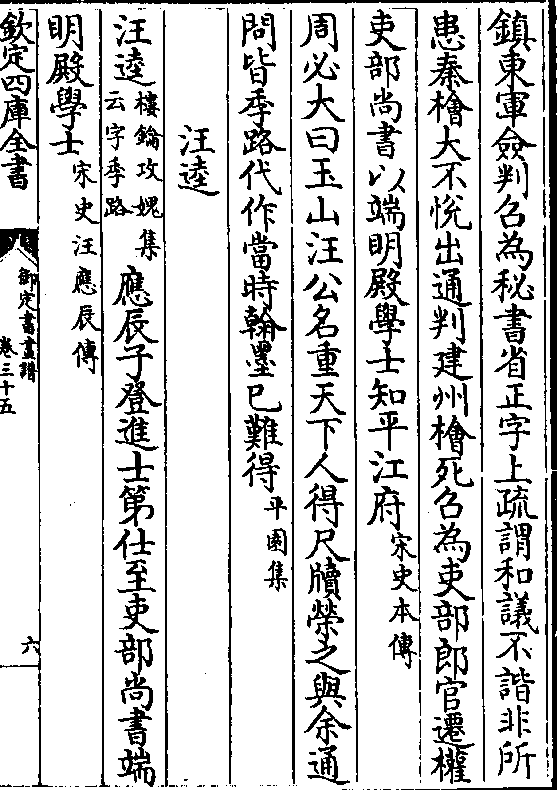 鎮東軍僉判召為秘書省正字上疏謂和議不諧非所
患秦檜大不悅出通判建州檜死召為吏部郎官遷權
吏部尚書以端明殿學士知平江府宋史本傳
周必大曰玉山汪公名重天下人得尺牘榮之與余通
問皆季路代作當時翰墨已難得平園集
汪逵
汪逵樓鑰攻媿集云字季路應辰子登進士第仕至吏部尚書端
明殿學士宋史汪應辰傳
欽定四庫全書
御定書畫譜
卷三十五
六